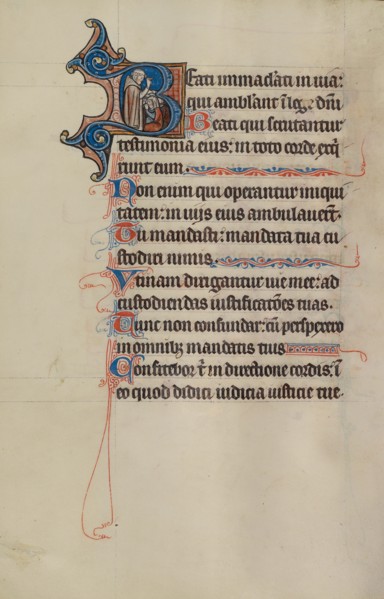 Beati inmaculati in uia:
qui amblant ī lege dn̄i
Beati qui scrutantur
testimonia eius: in toto corde exq̄
runt eum.
Non enim qui operantur iniqui
tatem: in uijs eius ambulauerūt.
Tu mandasti: mandata tua cu
stodiri nimis.
Vtinam dirigantur uie mee: ad
custodiendas iustificatōes tuas.
Tunc non confundar: cū perspexero
in omnibꝫ mandatis tuis
Confitebor t̄ in directione cordis: ī
eo quod didici iudicia iusticie tue.